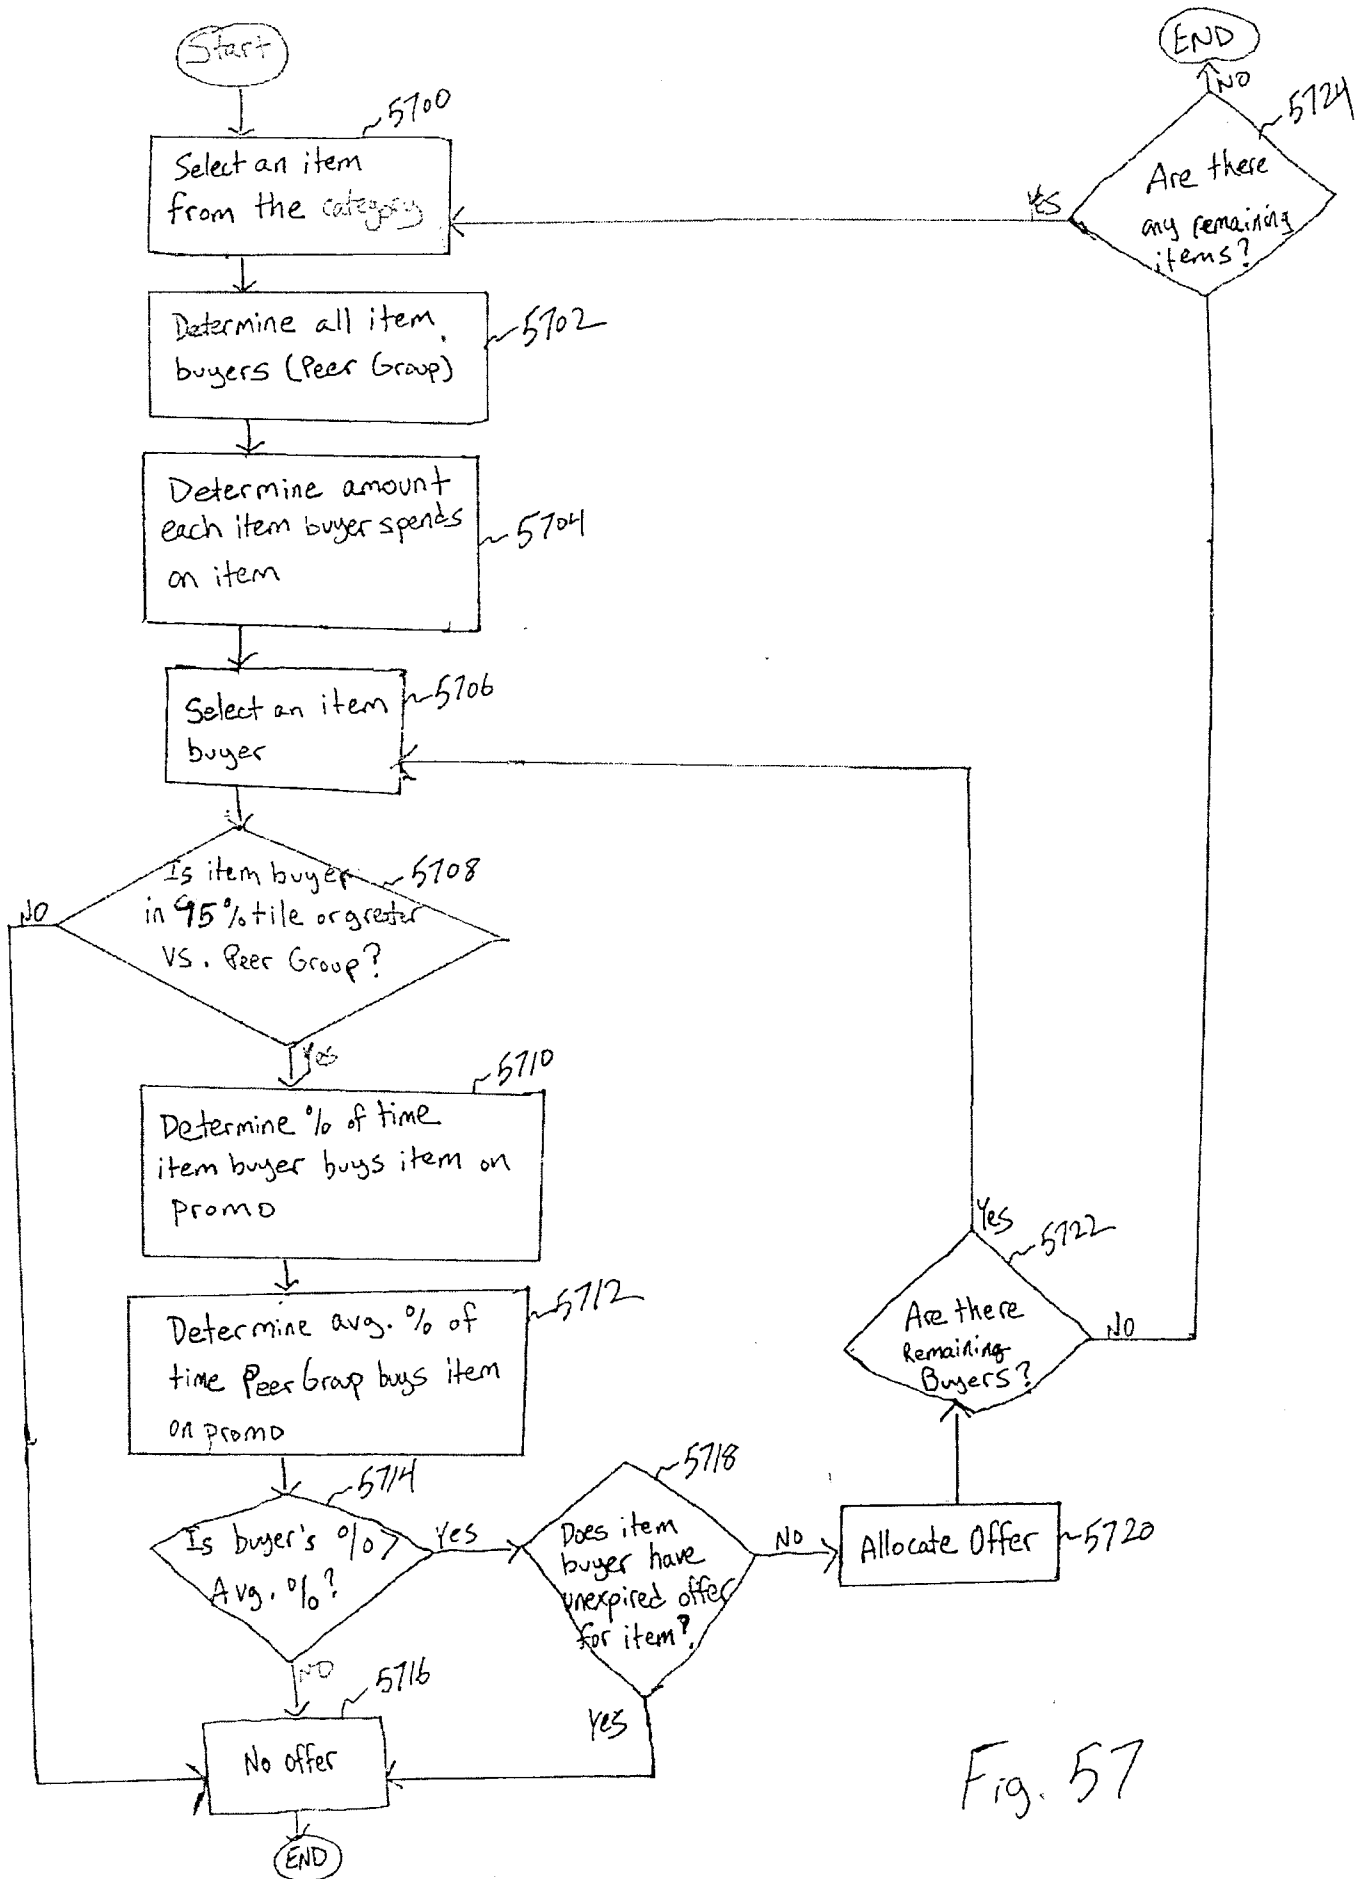 Start
5700
Select an item
from the category
5702
Determine all item
buyers (Peer Group)
5704
Determine amount
each item buyer spends
on item
5706
Select an item
buyer
5708
Is item buyer
in 95%tile or greater
VS. Peer Group?
NO
Yes
5710
Determine % of time
item buyer buys item on
promo
5712
Determine avg. % of
time Peer Group buys item
on promo
5714
Is buyer's %>
Avg. %?
Yes
NO
5716
No offer
END
5718
Does item
buyer have
unexpired offer
for item?
NO
Yes
Allocate Offer
5720
5722
Are there
Remaining
Buyers?
Yes
NO
5724
Are there
any remaining
items?
YES
NO
END
Fig. 57